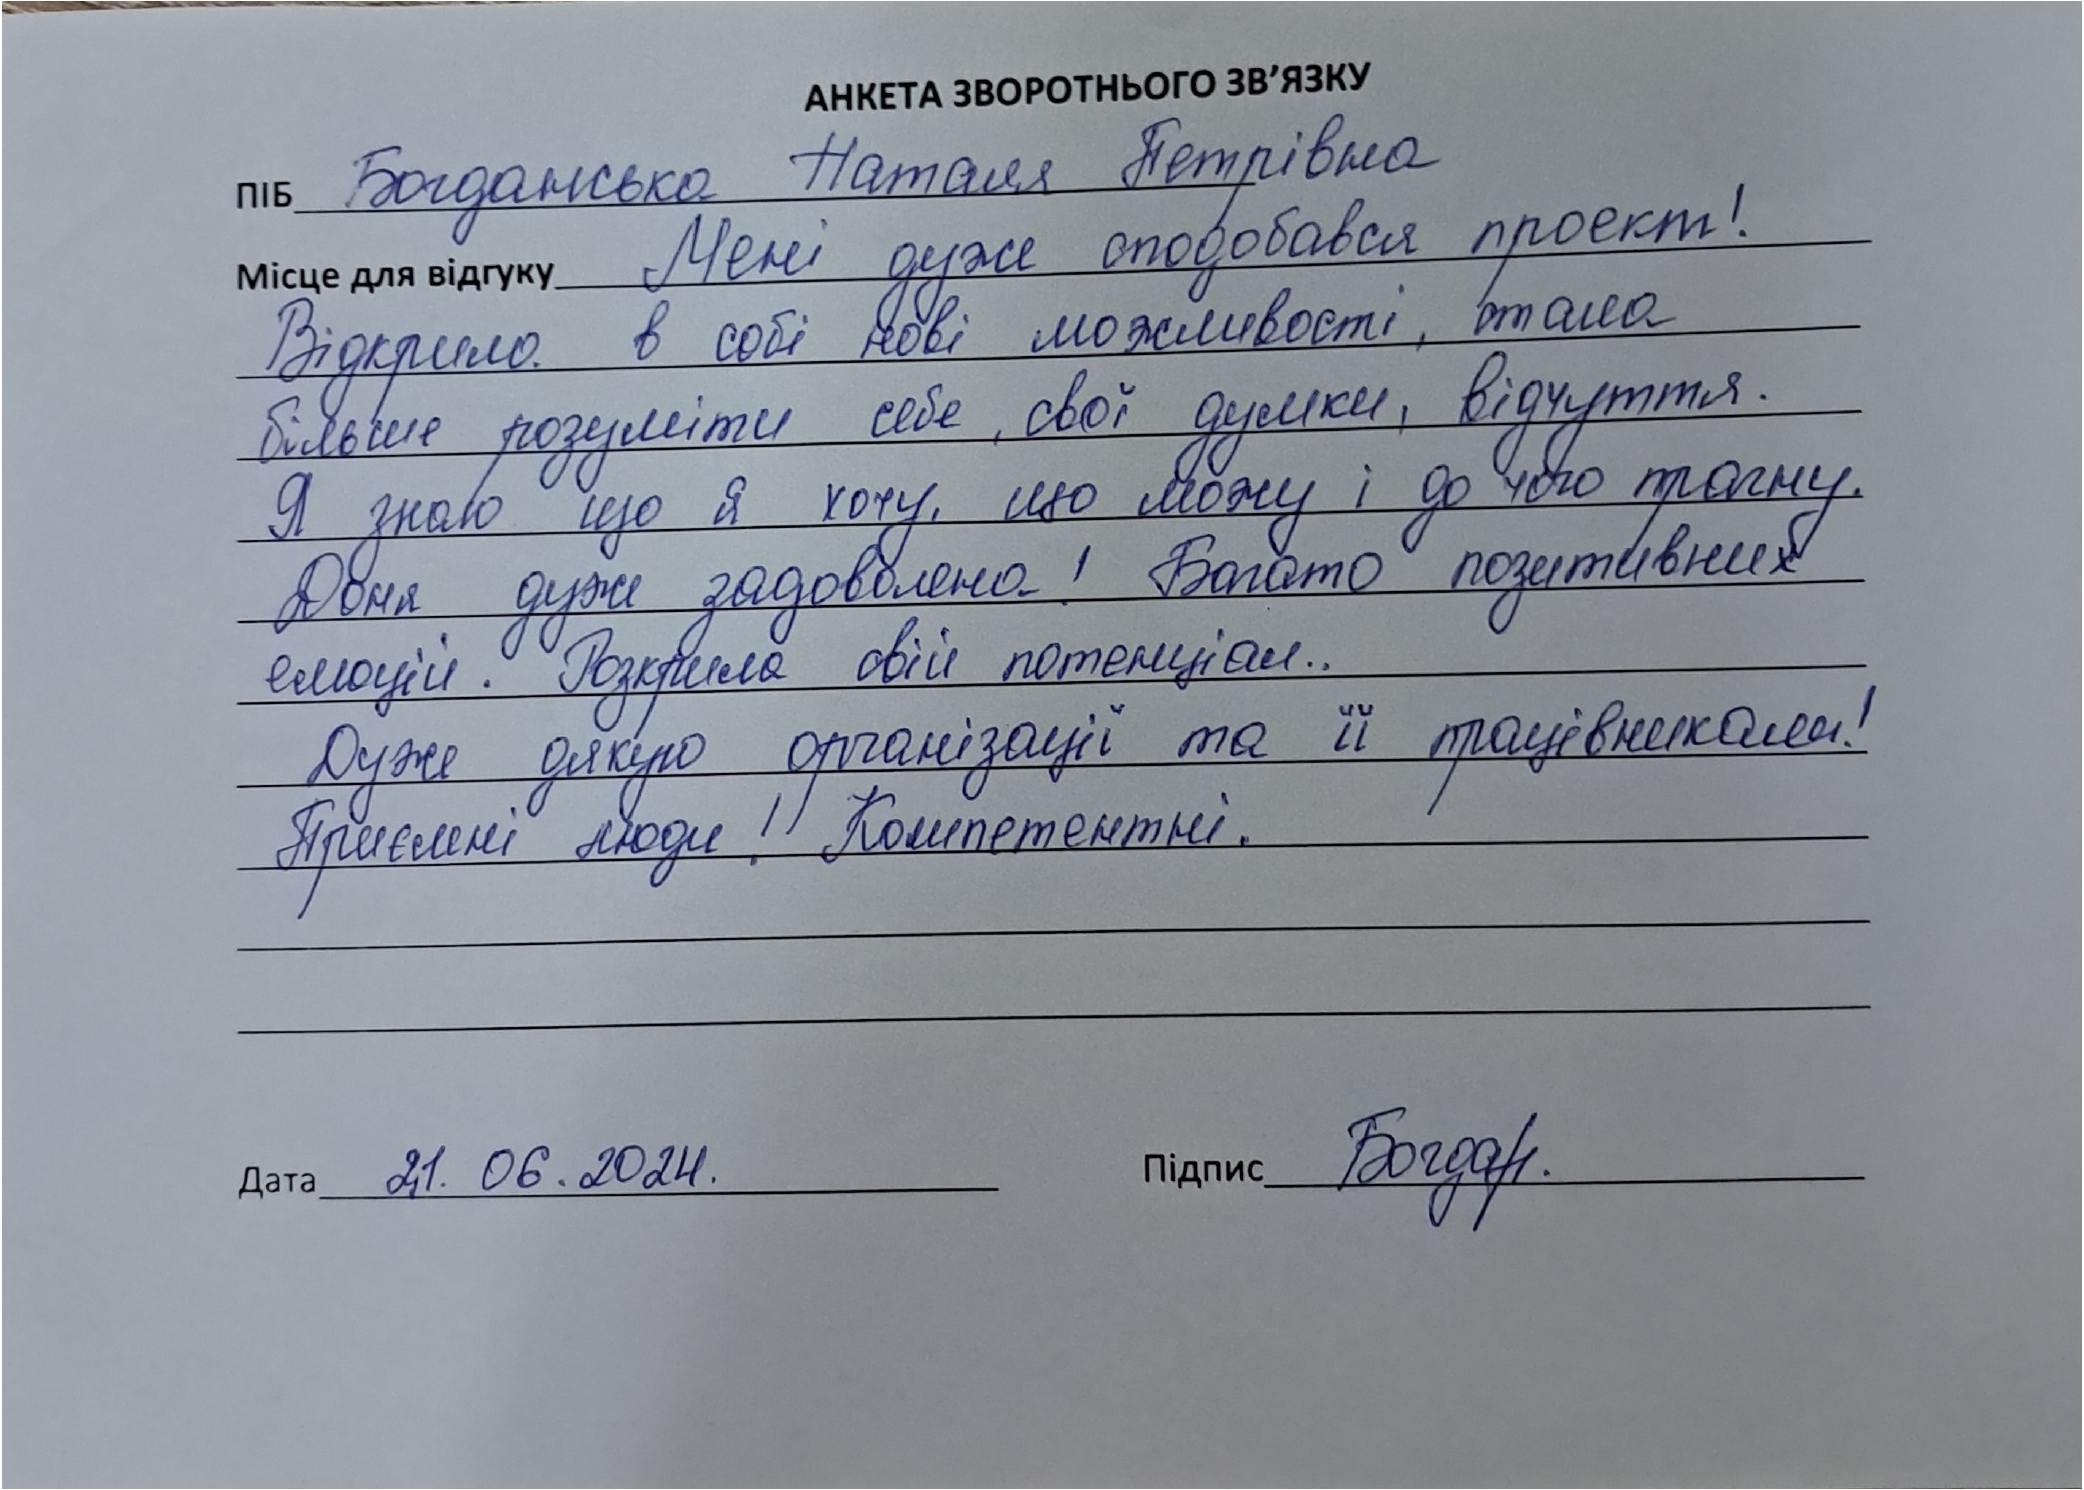 АНКЕТА ЗВОРОТНЬОГО ЗВ'ЯЗКУ
ПІБ Богданська Наталя Петрівна
Місце для відгуку Мені дуже сподобався проект!
Відкрила в собі нові можливості, стала
більше розуміти себе, свої думки, відчуття.
Я знаю що я хочу, що можу і до чого прагну.
Доня дуже задоволена! Багато позитивних
емоцій. Розкрила свій потенціал..
Дуже дякую організації та її працівникам!
Приємні люди!! Компетентні.
Дата 21.06.2024. Підпис Богдан.